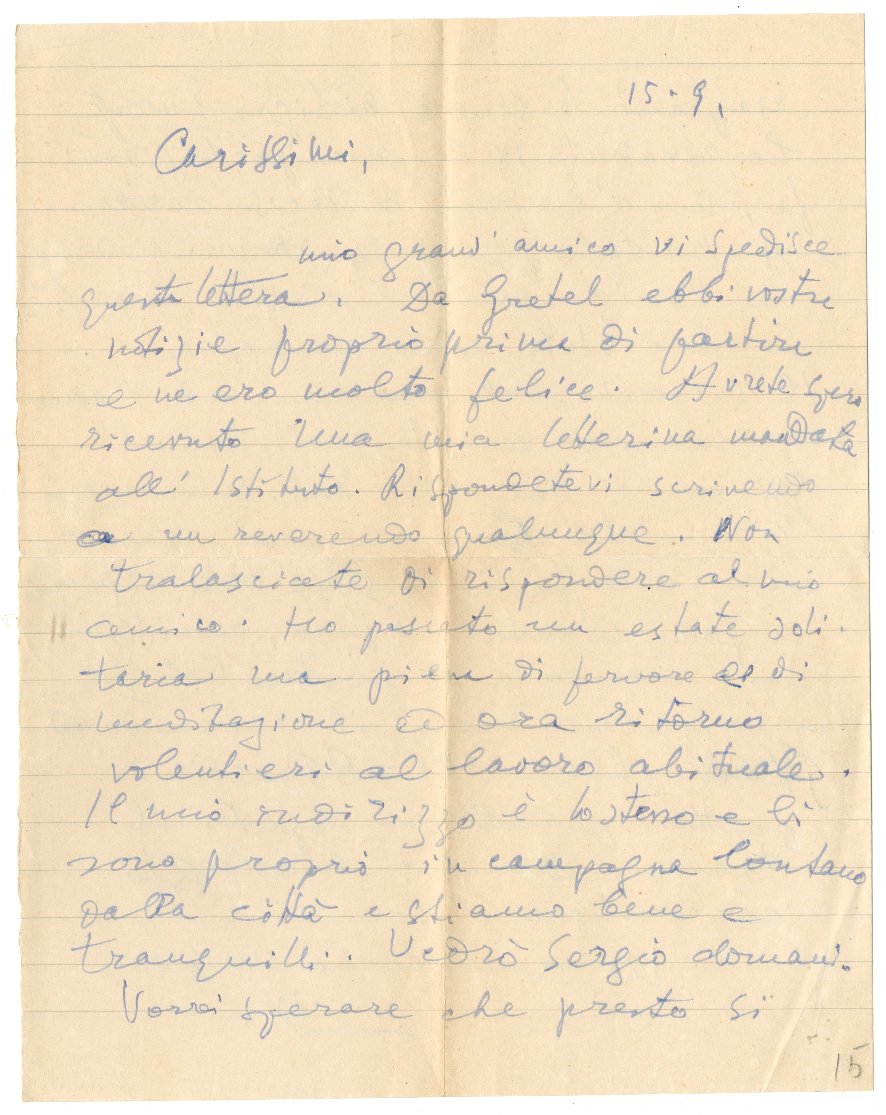 15-9.
Carissimi,
mio grand' amico vi spedisce
questa lettera. Da Gretel ebbi vostre
notizie proprio prima di partire
e ne ero molto felice. Avrete spero
ricevuto una mia letterina mandata
all' Istituto. Rispondetevi scrivendo
a un reverendo qualunque. Non
tralasciate di rispondere al mio
amico. Ho passato un estate soli-
taria ma piena di fervore e di
meditazione ed ora ritorno
volentieri al lavoro abituale.
Il mio indirizzo è lo stesso e lì
sono proprio in campagna lontano
dalla città e stiamo bene e
tranquilli. Vedrò Sergio domani.
Vorrei sperare che presto si
15